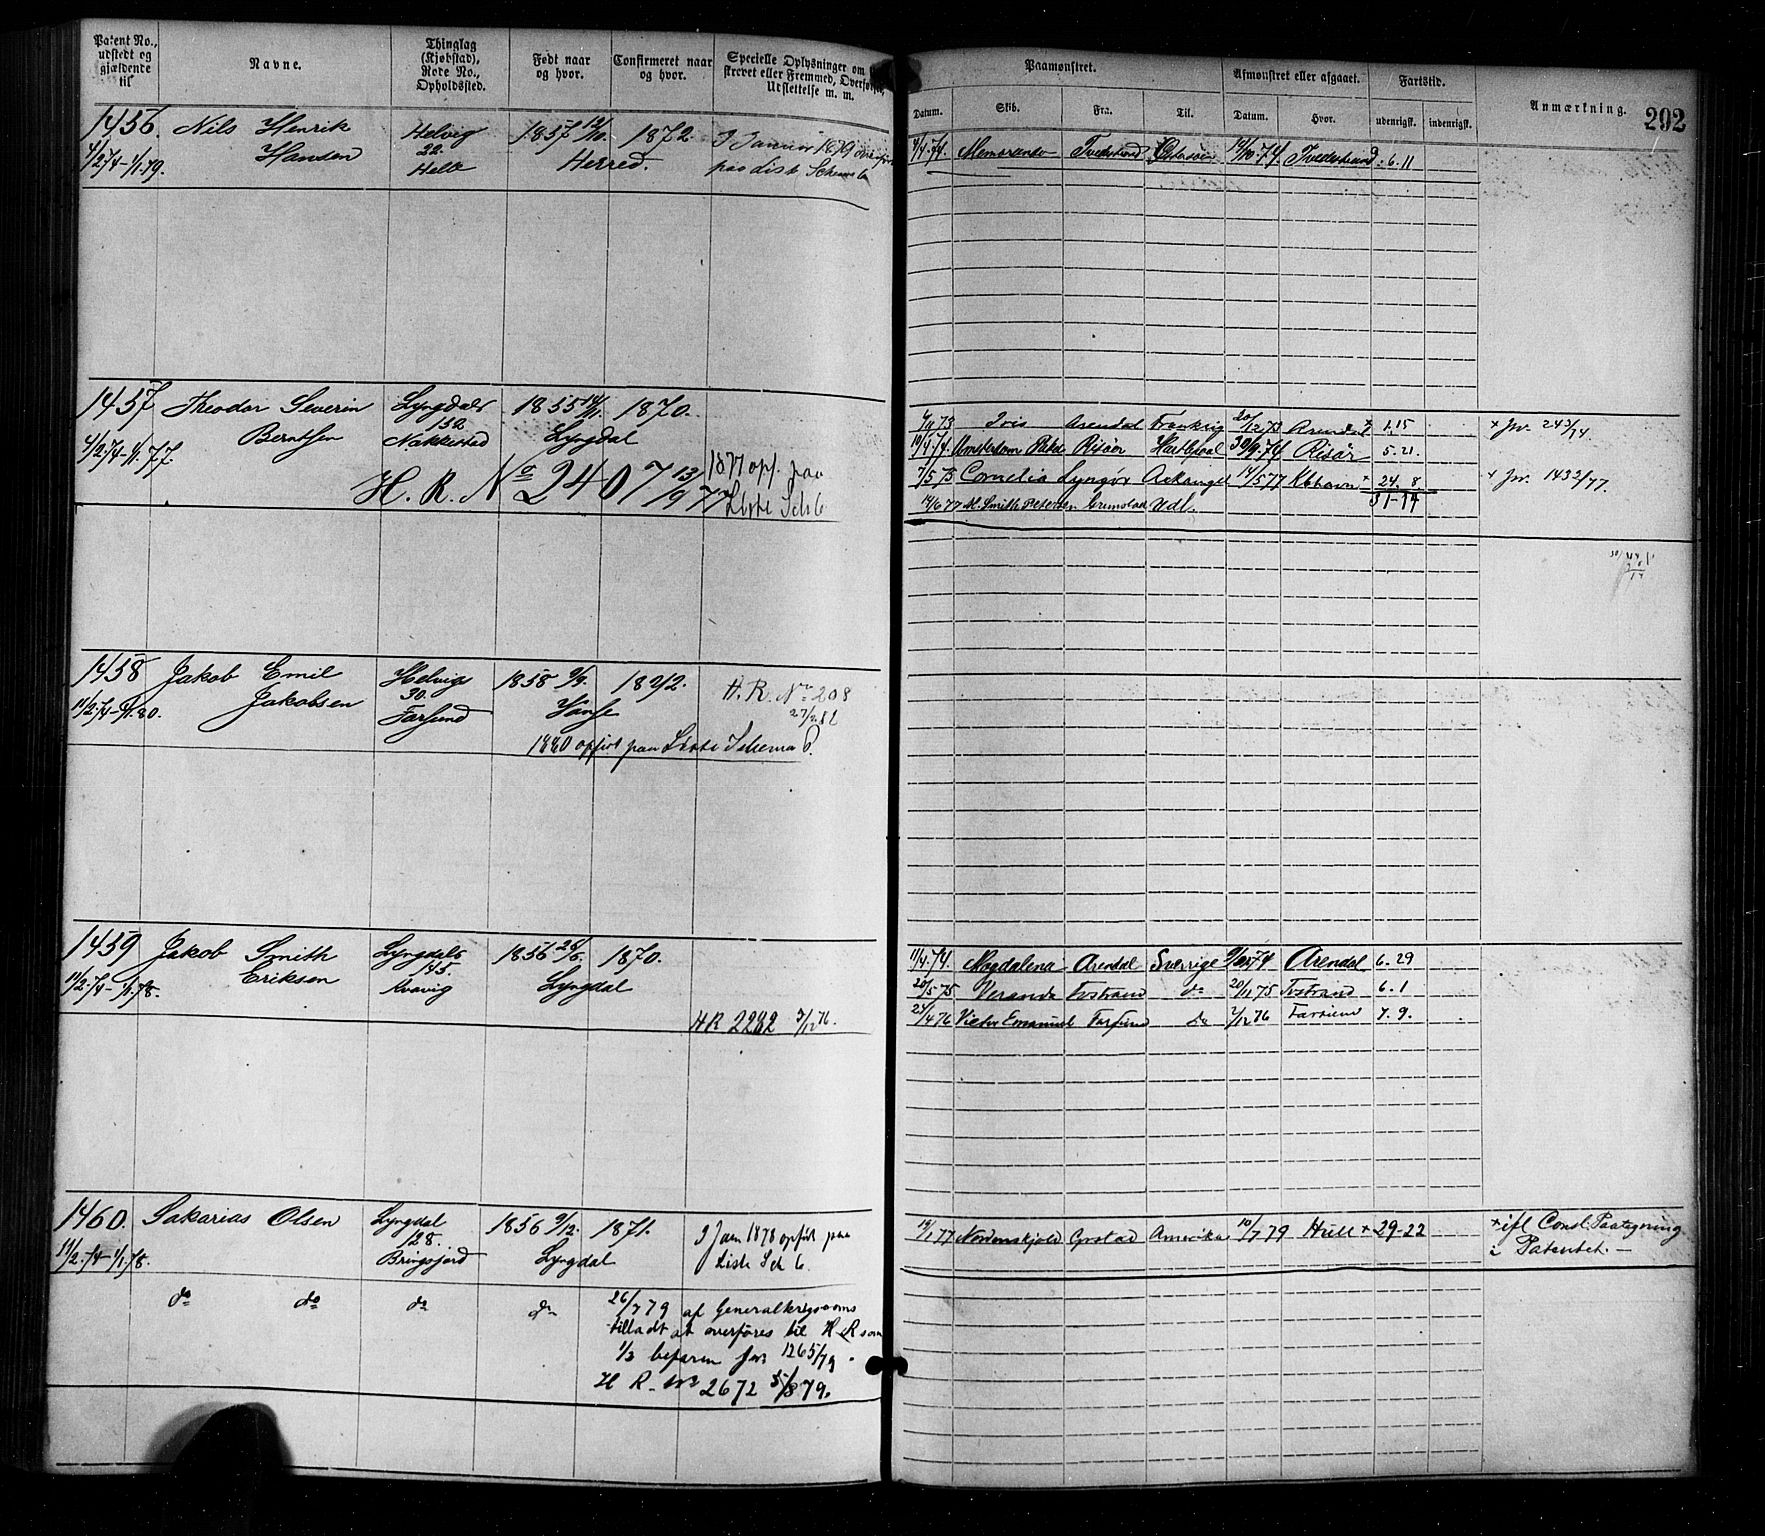 Patent No., udstedt og gjældende til
Navne.
Thinglag (Kjøbstad), Rode No., Opholdssted.
Født naar og hvor.
Confirmeret naar og hvor.
Specielle Oplysninger om
strevet eller Fremmed, Overførsel,
Udslettelse m. m.
Paamønstret.
Afmønstret eller afgaaet.
Fartstid.
Anmærkning.
202
Datum.
Skib.
Fra.
Til.
Datum.
Hvor.
udenrigsk.
indenrigsk.
1456. Nils Henrik Helvig 1857 12/10. 1872. I Januar 1879 overført
4/2 74-1/1 79. Hansen 22. Herred. paa distr Schema 6
Helle
Tvedestrand 12/10 74. Tvedestrand 6.11
1457 Theodor Severin Lyngdals 1855 14/11. 1870.
4/2 74-1/1 77. Berntsen 132 Lyngdal
Nakkestad
H. R. No 2407 13/9 77
1877 opf. paa
Liste Sch 6
Iris Arendal Frankrig 20/12 73 Arendal + 1.15 + Jr. 243/74.
Amsterdam Risør 30/9 74 Risør 5.21.
7/5 75 Cornelia Lyngør Arkangel 14/5 77 Kbhavn + 24. 8. + Jr. 1432/77.
31-14
14/6 77 M. Smith Petersen Grimstad Udl.
1458 Jakob Emil Helvigs 1858 9/9. 1872. H. R. No 208
11/2 74-1/1 80. Jakobsen 30. Vanse 27/2 82
Farsund
1880 opført paa Liste Schema 6.
1459 Jakob Smith Lyngdals 1856 1870.
11/2 74-1/1 78. Eriksen 145. Lyngdal
Kvavig
HR 2282 2/12 76.
11/4 74. Magdalena Arendal Sverrige 74 Arendal 6. 29
20/5 75 Veranda Tvstrand do 20/11 75 Tvstrand 6. 1
23/4 76 Victor Emanuel Farsund do 2/12 76 Farsund 7. 9.
1460. Sakarias Olsen Lyngdal 1856 9/12. 1871. I Jan 1878 opført paa
11/2 74-1/1 78. 128. Lyngdal Liste Sch 6.
Bringsjord
19/1 77 Nordenskjold Grstad Amerika 10/7 79 Hull + 29-22 + ifl Consl. Paategning
i Patentet. —
do do do do 26/7 79 af Generalkrigscoms
tilladt at overføres til H R som
1/3 befaren Jnr 1265/79.
H R. No 2672 5/8 79.